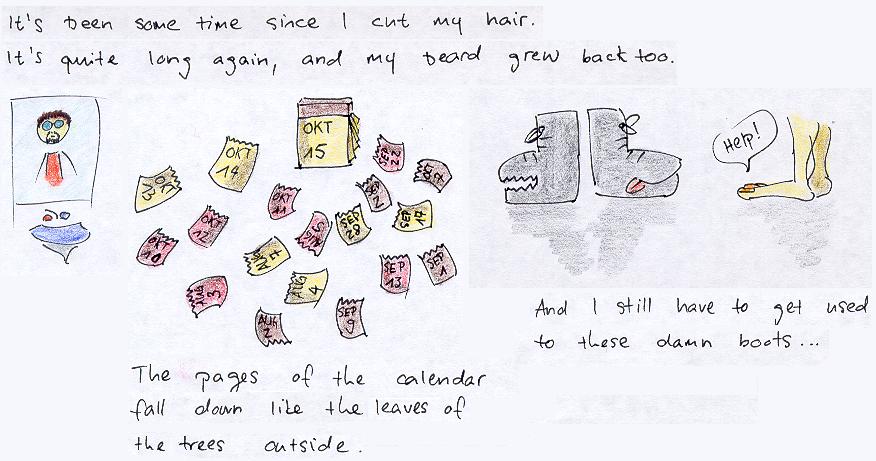 It's been some time since I cut my hair.
It's quite long again, and my beard grew back too.
OKT
15
OKT
14
OKT
13
SEP
22
OKT
11
SEP
2
OKT
12
SEP
28
SEP
17
OKT
10
AUG
4
SEP
13
SEP
1
AUG
3
AUG
2
SEP
9
Help!
The pages of the calendar
fall down like the leaves of
the trees outside.
And I still have to get used
to these damn boots...